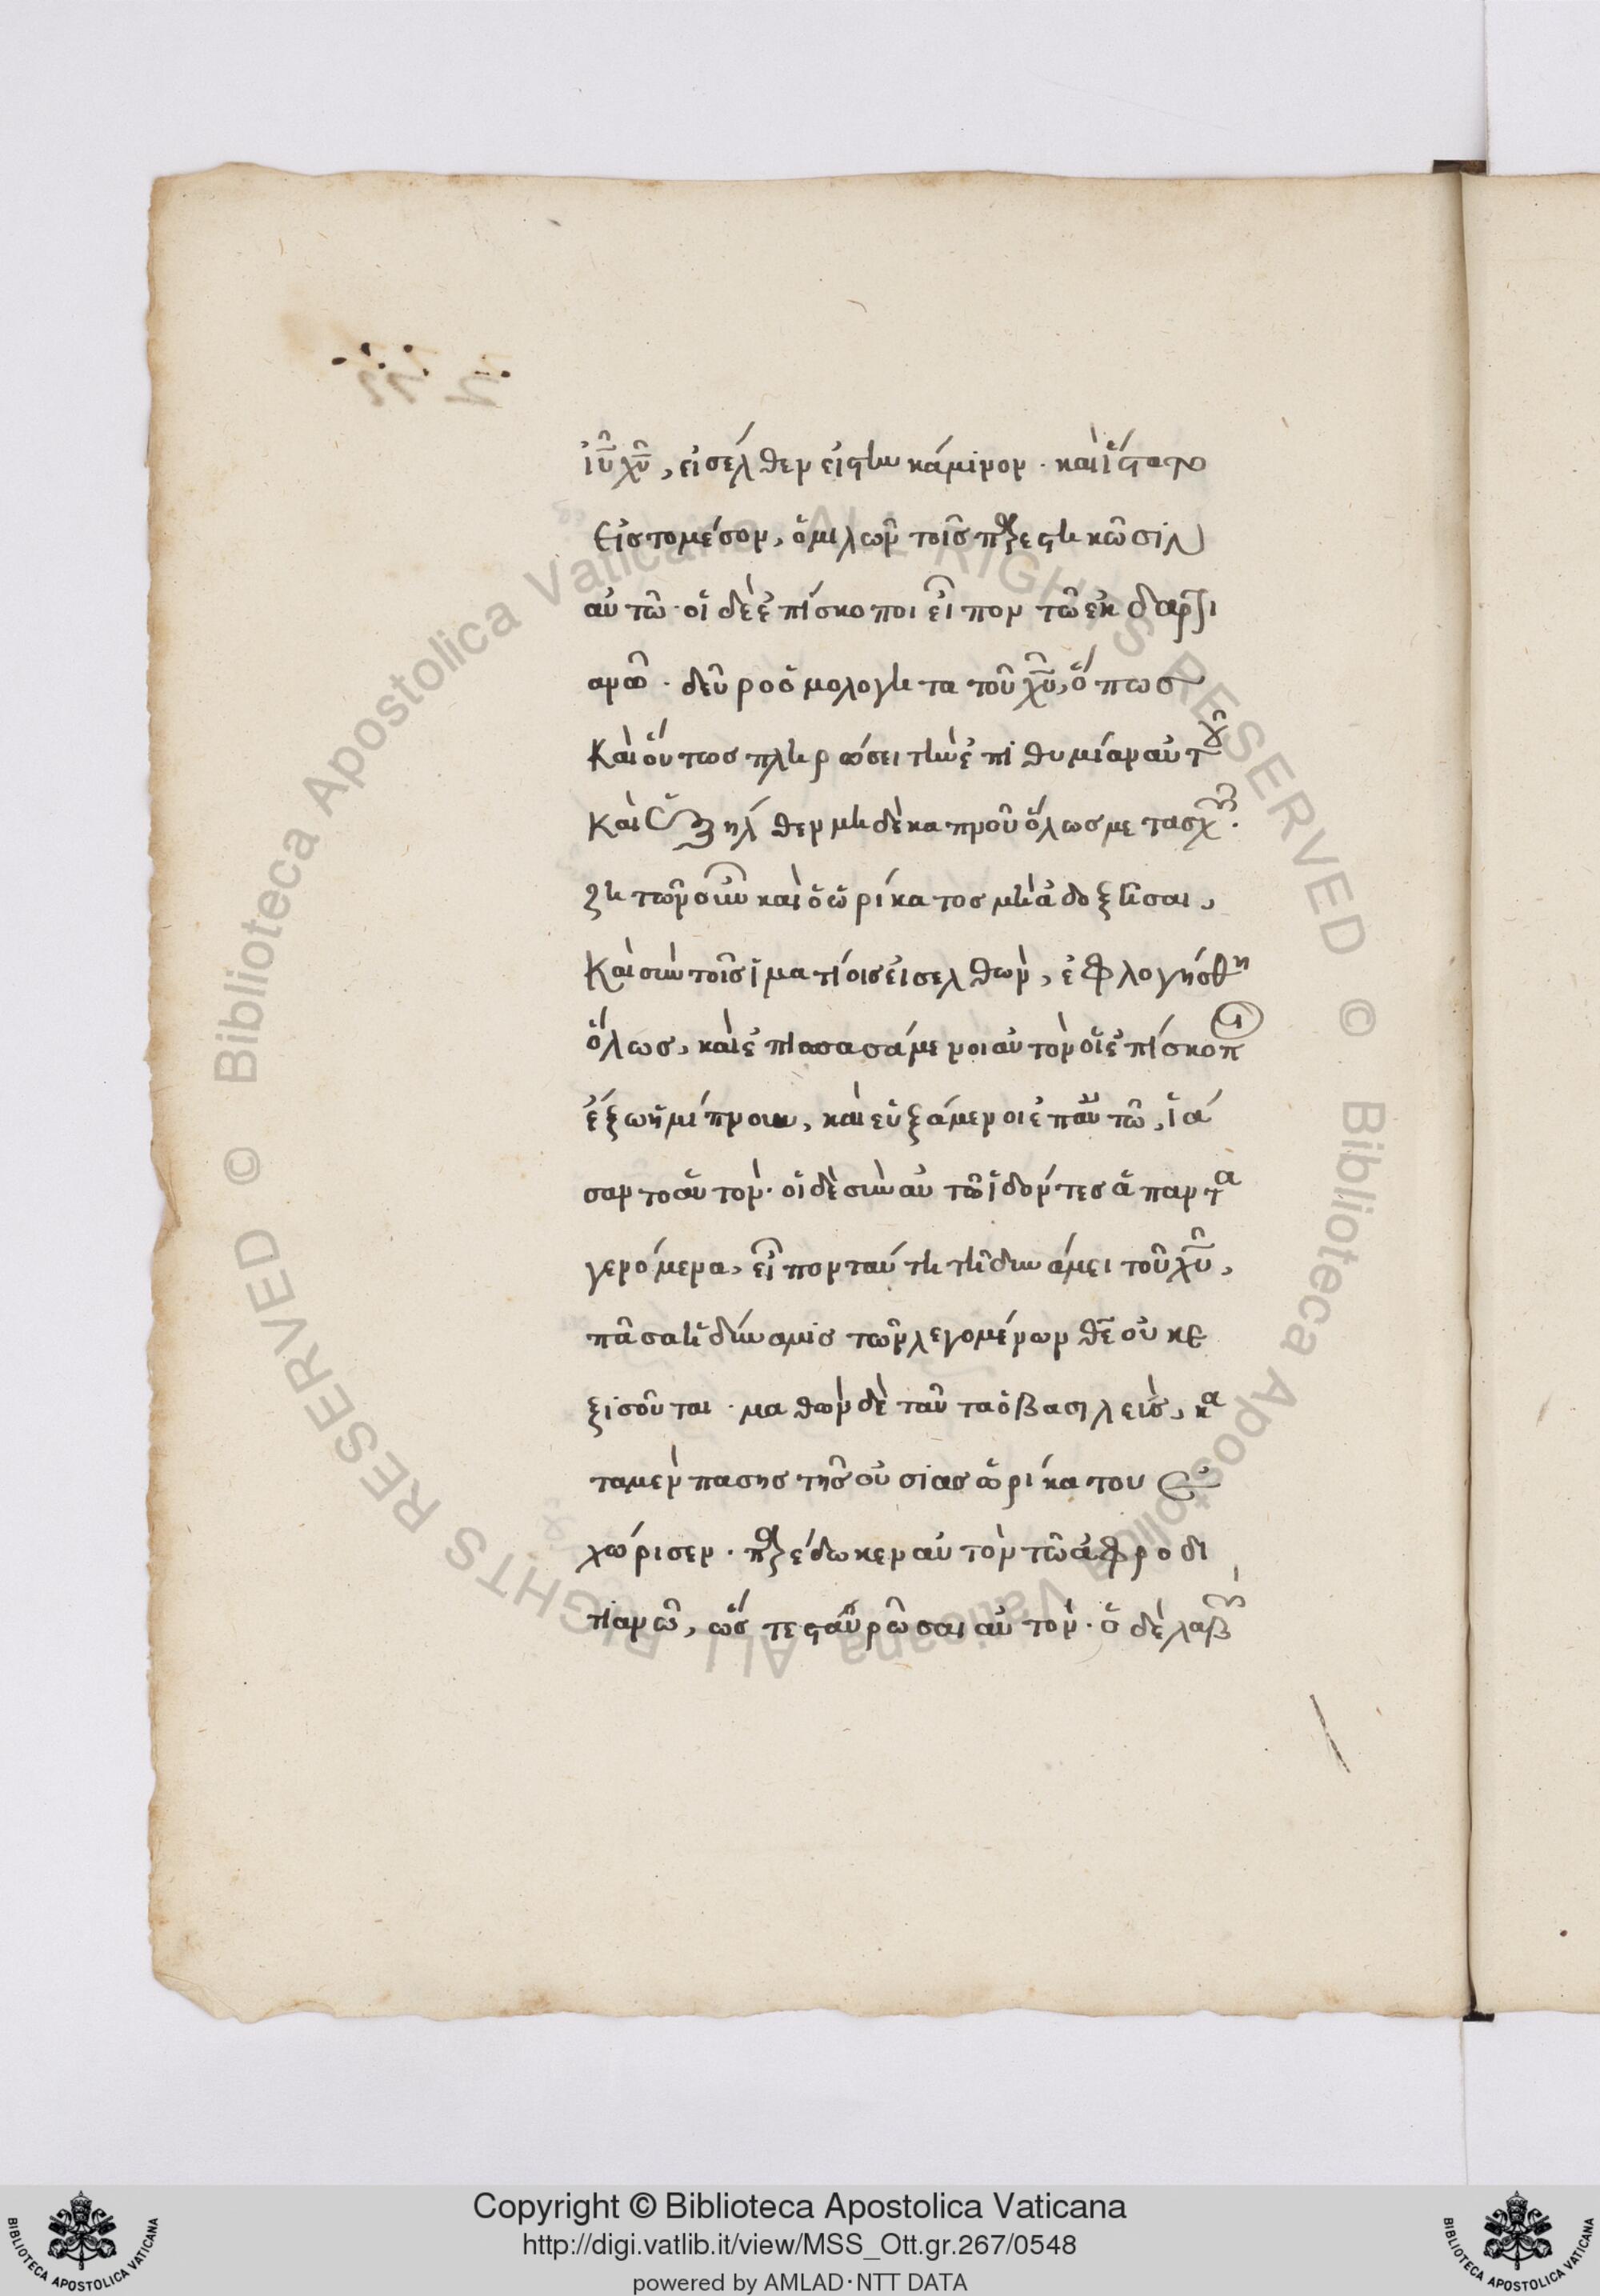 ἰῦ χῦ, εἰσέλθεν εἰς τὴν κάμινον. καὶ ἵστατο
εἰς το μέσον, ὁμιλῶν τοῖς παρεστηκῶσιν
αὐτῶ. οἱ δὲ ἐπίσκοποι εἶπον τῶ ἐκδαρσι
ανῶ. δεῦρο ὁμολογητα τοῦ χῦ, ὅπως
καὶ οὕτως πληρώσει τὴν ἐπιθυμίαν αὐτοῦ
καὶ ἐξηλθεν μηδὲ καπνοῦ ὅλως μετασχῶν.
ζητῶν οὖν καὶ ὁ ὡρίκατος μὴ ἀδοξῆσαι,
καὶ σὺν τοῖς ἱματίοις εἰσελθων, ἐφλογήσθη
ὅλως, καὶ ἐπισπασάμενοι αὐτὸν οἱ ἐπίσκοποι
ἔξω ἡμίπνουν, καὶ εὐξάμενοι ἐπ' αὐτῶ, ἰά
σαντο αὐτον. οἱ δὲ σὺν αὐτῶ ἰδόντες ἅπαντα
γενόμενα, εἶπον ταύτη τῆ δυνάμει τοῦ χῦ,
πᾶσα ἡ δύναμις τῶν λεγομένων θε οὐκ ε
ξισοῦται. μαθὼν δὲ ταῦτα ὁ βασιλεὺς, κα
τα μεν πασης τῆς οὐσίας ὡρικατου ἐ
χώρισεν. παρέδωκεν αὐτον τῶ ἀφροδι
τιανῶ, ὥστε σταυρῶσαι αὐτον. ὁ δὲ λαβὼν
Copyright © Biblioteca Apostolica Vaticana
http://digi.vatlib.it/view/MSS_Ott.gr.267/0548
powered by AMLAD·NTT DATA